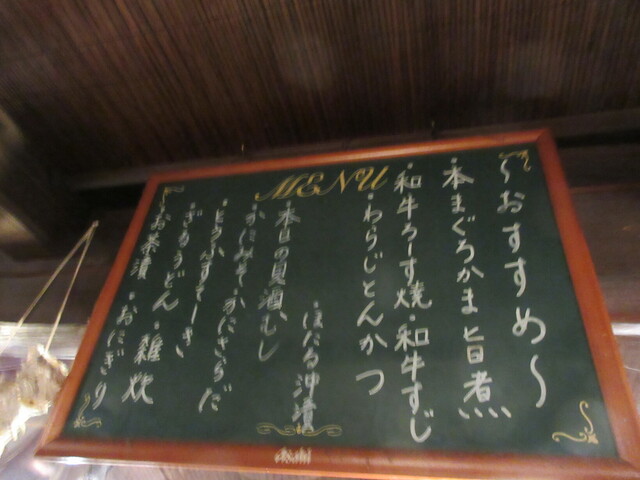 MENU
〜おすすめ〜
・本まぐろかま旨煮
・和牛ろーす焼・和牛すじ
・わらじとんかつ
・ほたる沖漬
・本日の貝酒むし
・かにみそ・かにさらだ
・とうふすてーき
・ざるうどん・雑炊
・お茶漬・おにぎり
Asahi